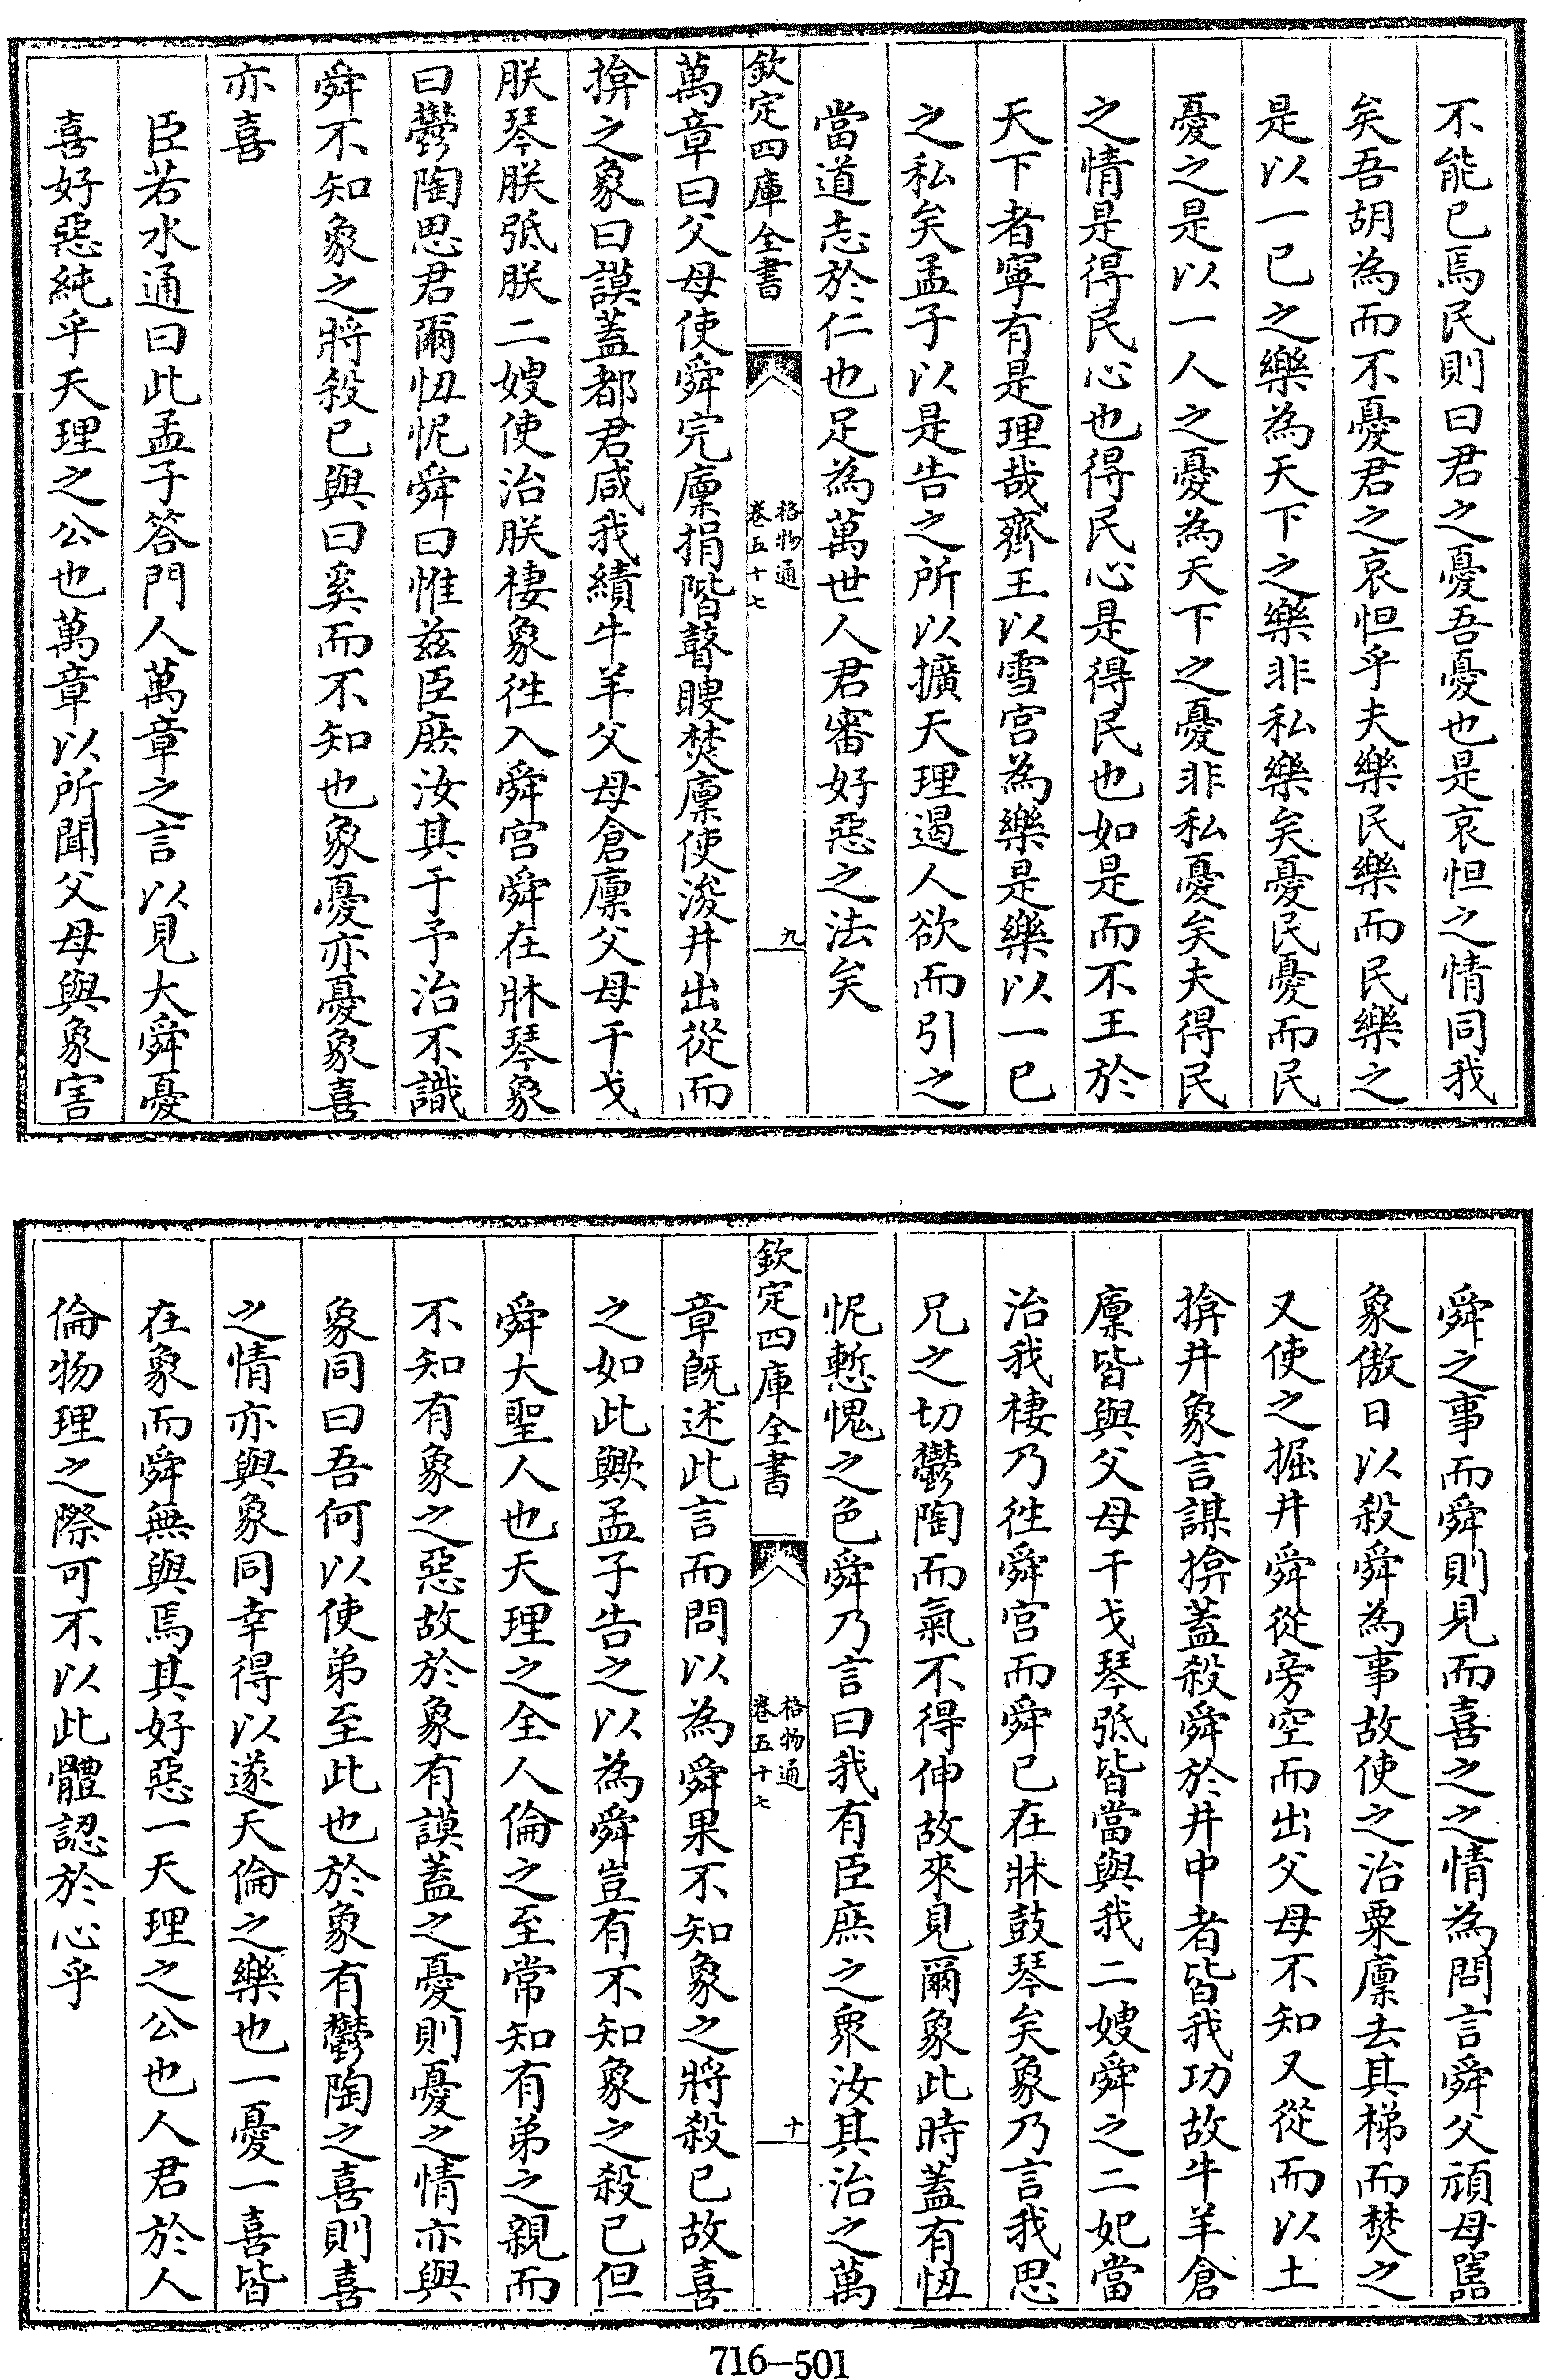 不能已焉民則曰君之憂吾憂也是哀怛之情同我
矣吾胡為而不憂君之哀怛乎夫樂民樂而民樂之
是以一已之樂為天下之樂非私樂矣憂民憂而民
憂之是以一人之憂為天下之憂非私憂矣夫得民
之情是得民心也得民心是得民也如是而不王於
天下者寧有是理哉齊王以雪宫為樂是樂以一已
之私矣孟子以是告之所以擴天理遏人欲而引之
當道志於仁也足為萬世人君審好惡之法矣
欽定四庫全書
格物通
卷五十七
九
萬章曰父母使舜完廩捐階瞽瞍焚廩使浚井出從而
揜之象曰謨蓋都君咸我績牛羊父母倉廩父母干戈
朕琴朕弤朕二嫂使治朕棲象徃入舜宫舜在牀琴象
曰鬱陶思君爾忸怩舜曰惟兹臣庶汝其于予治不識
舜不知象之將殺已與曰奚而不知也象憂亦憂象喜
亦喜
臣若水通曰此孟子答門人萬章之言以見大舜憂
喜好惡純乎天理之公也萬章以所聞父母與象害
舜之事而舜則見而喜之之情為問言舜父頑母嚚
象傲日以殺舜為事故使之治粟廩去其梯而焚之
又使之掘井舜從旁空而出父母不知又從而以土
揜井象言謀揜蓋殺舜於井中者皆我功故牛羊倉
廩皆與父母干戈琴弤皆當與我二嫂舜之二妃當
治我棲乃徃舜宫而舜已在牀鼓琴矣象乃言我思
兄之切鬱陶而氣不得伸故來見爾象此時蓋有忸
怩慙愧之色舜乃言曰我有臣庶之衆汝其治之萬
欽定四庫全書
格物通
卷五十七
十
章既述此言而問以為舜果不知象之將殺已故喜
之如此歟孟子告之以為舜豈有不知象之殺已但
舜大聖人也天理之全人倫之至常知有弟之親而
不知有象之惡故於象有謨蓋之憂則憂之情亦與
象同曰吾何以使弟至此也於象有鬱陶之喜則喜
之情亦與象同幸得以遂天倫之樂也一憂一喜皆
在象而舜無與焉其好惡一天理之公也人君於人
倫物理之際可不以此體認於心乎
716-501